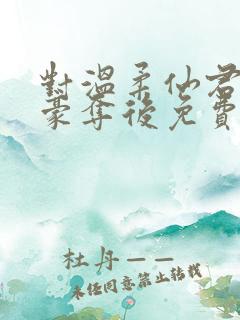 對溫柔仙君
豪奪後免費
杜丹——
未經同意禁止轉載